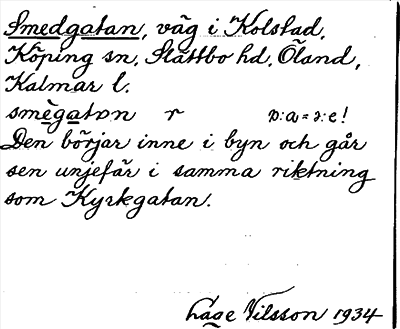 Smedgatan, väg i Kolstad,
Köping sn, Slättbo hd, Öland,
Kalmar l.
smègatɒn r ɒ:a=ɔ:e!
Den börjar inne i byn och går
sen unjefär i samma riktning
som Kyrkgatan.
Låge Nilsson 1934